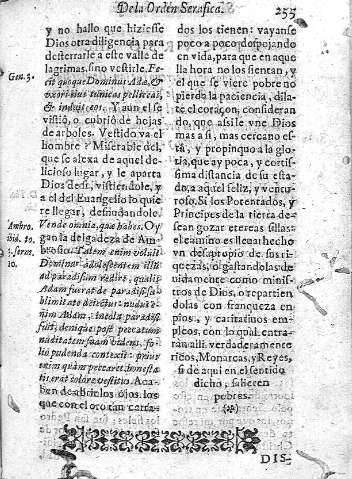 De la Orden Serafica. 255
y no hallo que hiziesse
Dios otra diligencia para
desterrarle a este valle de
lagrimas, sino vestirle. Fe-
cit quoque Dominus Adæ, &
uxori eius tunicas pelliceas,
& induit eos. Y aun el se
vistiò, o cubriò de hojas
de arboles. Vestido va el
hombre Miserable del,
que se alexa de aquel de-
licioso lugar, y le aparta
Dios de si, vistiendole, y
a el del Euangelio lo quie
re llegar, desnudandole.
Vende omnia, quæ habes. Oy
gan la delgadeza de Am-
brosio.
Dominus adolescentem illũ
ad paradisum redire, qualis
Adam fuerat de paradisi su
blimitate deiectus: nudus e-
nim Adam, incola paradisi
fuit; denique post peccatum
nuditatem suam videns, fo-
lijs pudenda contexit: prius
enim quàm peccaret, honesta
tis erat
ben de abrir los ojos los
que con el oro tan cerra-
Gen. 3.
Ambro.
serm.
10.
dos los tienen: vayanse
poco a poco despojando
en vida, para que en aque
lla hora no los sientan, y
el que se viere pobre no
pierda la paciencia, dila-
te el coraçon, consideran
do, que assi le vne Dios
mas a si, mas cercano es-
tà, y propinquo a la glo-
ria, que ay poca, y cortis-
sima distancia de su esta-
do, a aquel feliz, y ventu-
roso. Si los Potentados, y
Principes de la tierra de-
sean gozar etereas sillas,
el camino es lleuar hecho
vn desapropio de sus ri-
quezas, o gastandolas de
uidamente como minis-
tros de Dios, o repartien
dolas con franqueza en
pios, y caritatiuos em-
pleos, con lo qual entra-
ràn allà verdaderamente
ricos, Monarcas, y Reyes,
si de aqui en el sentido
dicho, salieren
pobres.
DIS-